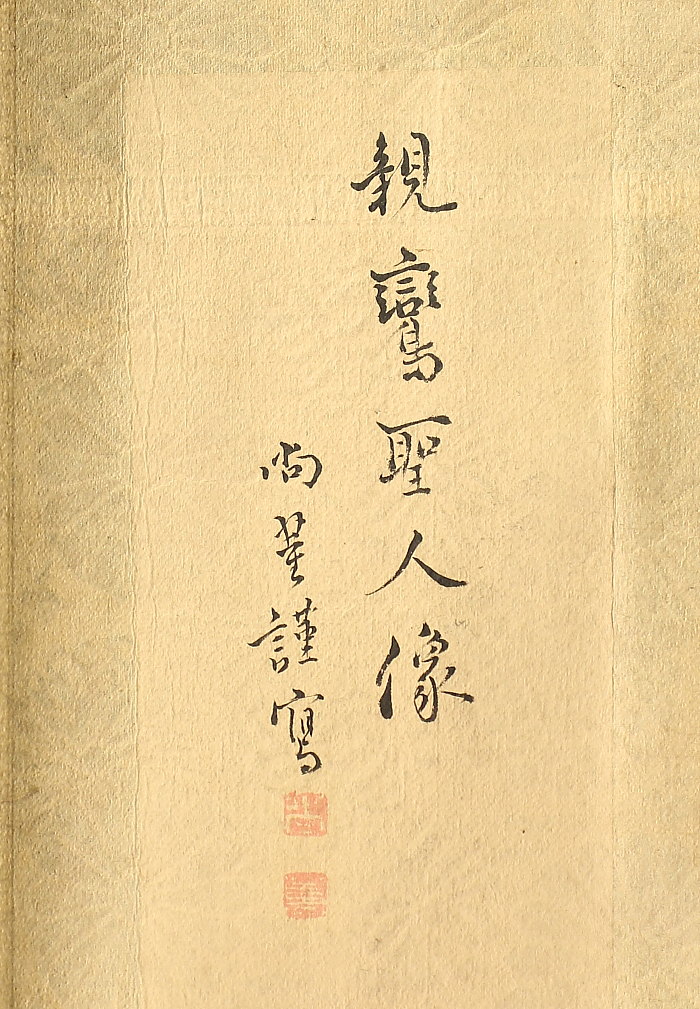 親鸞聖人像
尚謹寫